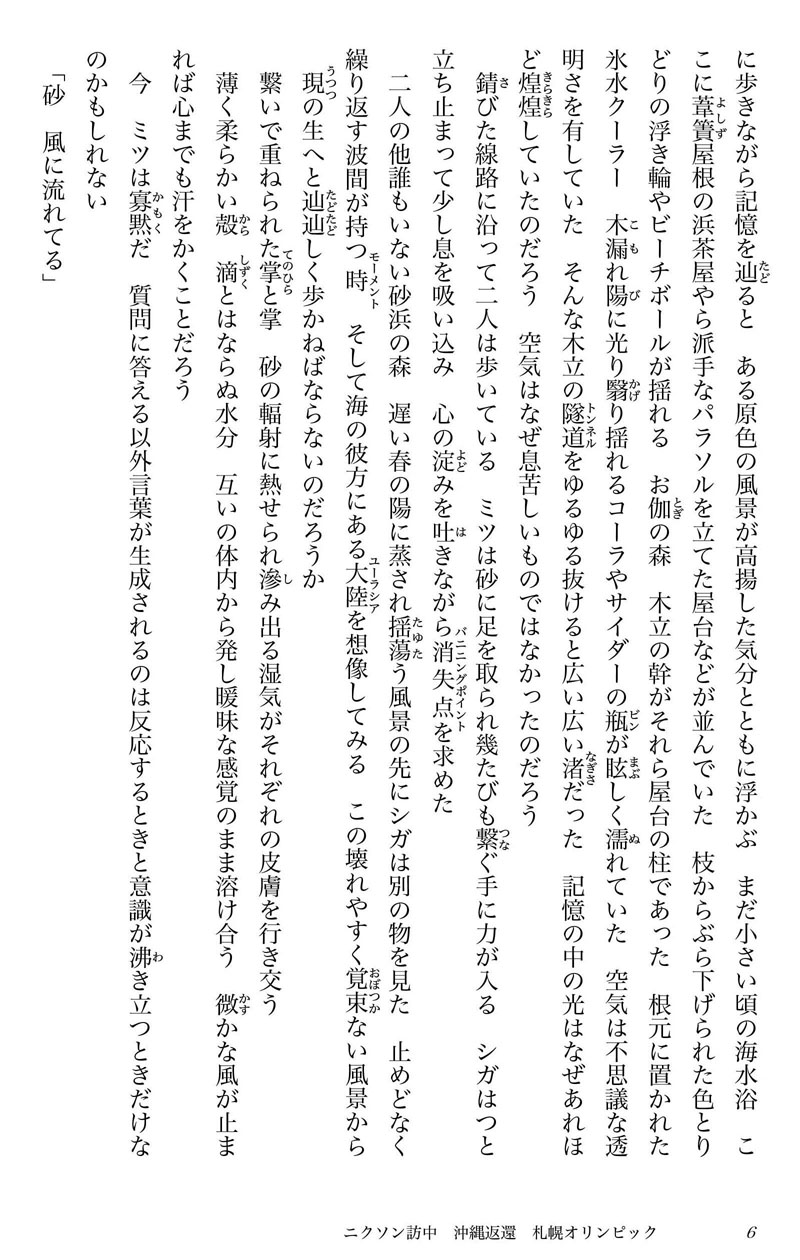 に歩きながら記憶を辿ると　ある原色の風景が高揚した気分とともに浮かぶ　まだ小さい頃の海水浴　こ
こに葦簀屋根の浜茶屋やら派手なパラソルを立てた屋台などが並んでいた　枝からぶら下げられた色とり
どりの浮き輪やビーチボールが揺れる　お伽の森　木立の幹がそれら屋台の柱であった　根元に置かれた
氷水クーラー　木漏れ陽に光り翳り揺れるコーラやサイダーの瓶が眩しく濡れていた　空気は不思議な透
明さを有していた　そんな木立の隧道をゆるゆる抜けると広い広い渚だった　記憶の中の光はなぜあれほ
ど煌煌していたのだろう　空気はなぜ息苦しいものではなかったのだろう
　錆びた線路に沿って二人は歩いている　ミツは砂に足を取られ幾たびも繋ぐ手に力が入る　シガはつと
立ち止まって少し息を吸い込み　心の淀みを吐きながら消失点を求めた
　二人の他誰もいない砂浜の森　遅い春の陽に蒸され揺蕩う風景の先にシガは別の物を見た　止めどなく
繰り返す波間が持つ時　そして海の彼方にある大陸を想像してみる　この壊れやすく覚束ない風景から
現の生へと辿辿しく歩かねばならないのだろうか
　繋いで重ねられた掌と掌　砂の輻射に熱せられ滲み出る湿気がそれぞれの皮膚を行き交う
　薄く柔らかい殻　滴とはならぬ水分　互いの体内から発し曖昧な感覚のまま溶け合う　微かな風が止ま
れば心までも汗をかくことだろう
　今　ミツは寡黙だ　質問に答える以外言葉が生成されるのは反応するときと意識が沸き立つときだけな
のかもしれない
「砂　風に流れてる」
ニクソン訪中　沖縄返還　札幌オリンピック
6